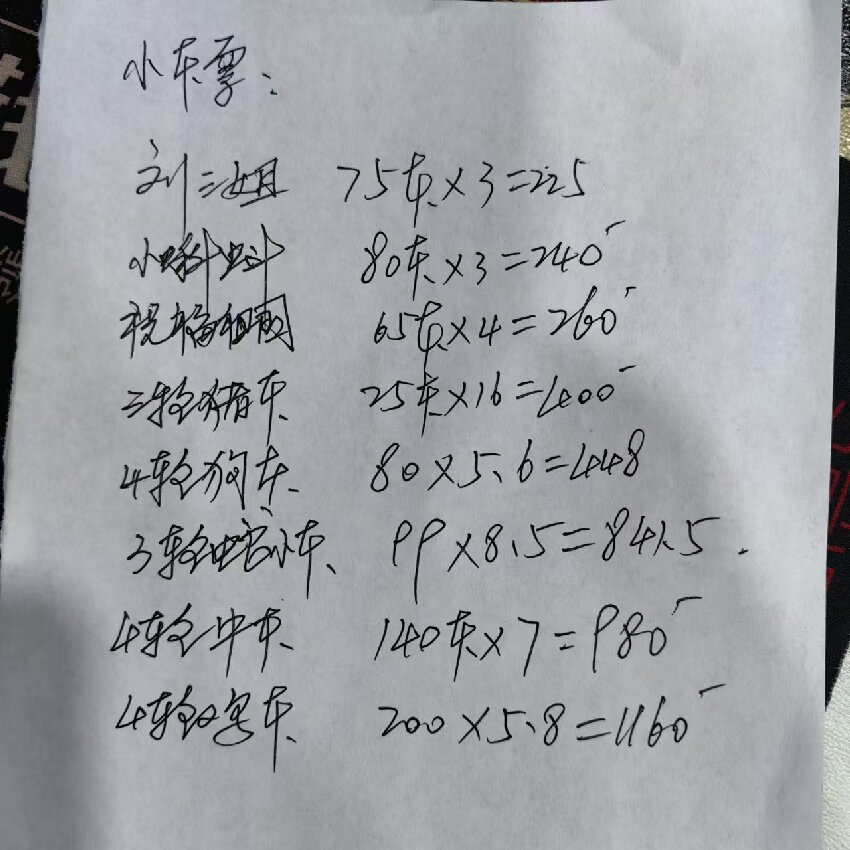 小车票:
刘三姐 75车×3=225
小蝌蚪 80车×3=240
祝福祖国 65车×4=260
三轮猪车 25车×16=400
4轮狗车 80×5.6=448
3轮小车 99×8.5=841.5
4轮中车 140车×7=980
4轮客车 200×5.8=1160